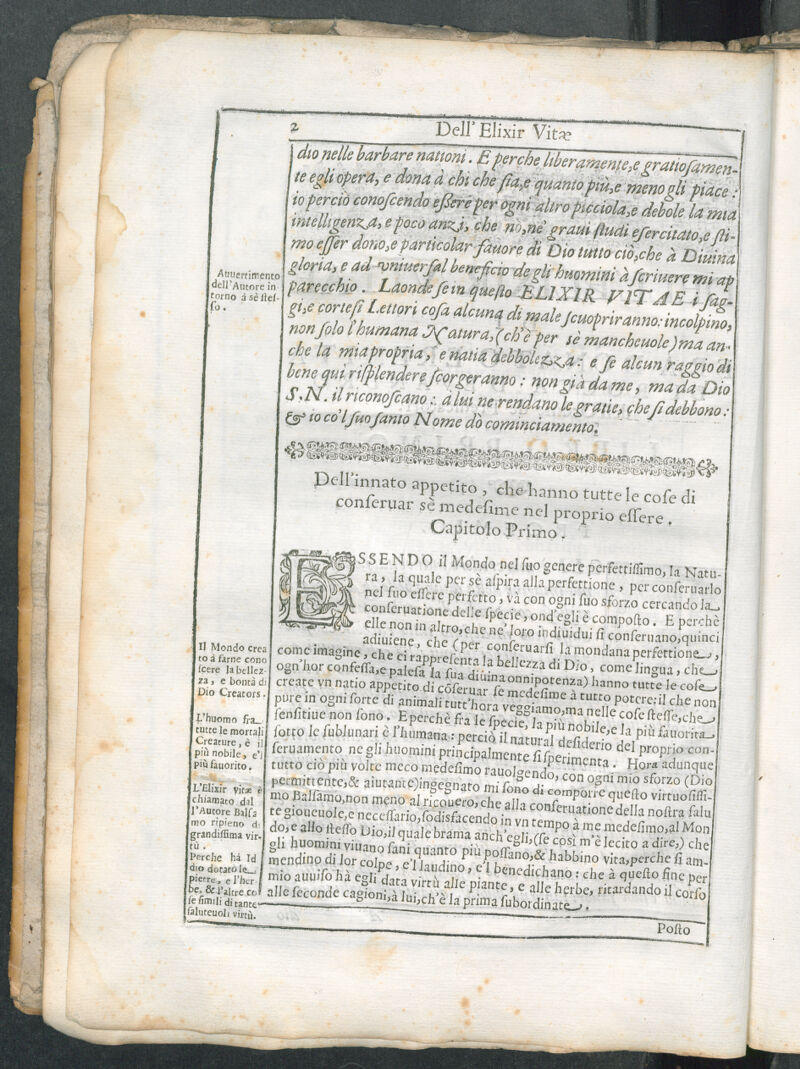 2
Dell' Elixir Vitæ
dio nelle barbare nationi. E perche liberamente,e gratioſamen-
te egli opera, e dona à chi che ſia,e quanto più,e meno gli piace:
io perciò conoſcendo eßere per ogni altro picciola,e debole la mia
intelligenza, e poco anzi, che nò,nè graui ſtudi eſercitato,e ſti-
mo eſſer dono,e particolar fauore di Dio tutto ciò,che à Diuina
gloria, e ad vniuerſal beneficio de gli huomini à ſcriuere mi ap
parecchio. Laonde ſe in queſto ELIXIR VITAE i ſag-
gi,e corteſi Lettori coſa alcuna di male ſcuopriranno: incolpino,
non ſolo l'humana Natura,(ch'è per sè mancheuole) ma an-
che la mia propria, e natia debbolezza: e ſe alcun raggio di
bene qui riſplendere ſcorgeranno: non già da me, ma da Dio
S.N. il riconoſcano: a lui ne rendano le gratie, che ſi debbono:
& io co'l ſuo ſanto Nome dò cominciamento.
Auuertimento
dell'Autore in-
torno à sè ſteſ-
ſo.
Dell'innato appetito, che hanno tutte le coſe di
conſeruar sè medeſime nel proprio eſſere.
Capitolo Primo.
ESSENDO il Mondo nel ſuo genere perfettiſſimo, la Natu-
ra, la quale per sè aſpira alla perfettione, per conſeruarlo
nel ſuo eſſere perfetto, và con ogni ſuo sforzo cercando la
conſeruatione delle ſpecie, ond'egli è compoſto. E perchè
elle non in altro,che ne' loro indiuidui ſi conſeruano,quinci
adiuiene, che (per conſeruarſi la mondana perfettione,
come imagine, che ci rappreſenta la bellezza di Dio, come lingua, che
ogn'hor confeſſa,e paleſa la ſua diuina onnipotenza) hanno tutte le coſe
create vn natio appetito di cōſeruar ſe medeſime à tutto potere: il che non
pure in ogni ſorte di animali tutt'hora veggiamo,ma nelle coſe ſteſſe,che
ſenſitiue non ſono. E perchè frà le ſpecie, la più nobile,e la più fauorita
ſotto le ſublunari è l'humana: perciò il natural deſiderio del proprio con-
ſeruamento ne gli huomini principalmente ſi ſperimenta. Hora adunque
tutto ciò più volte meco medeſimo rauolgendo, con ogni mio sforzo (Dio
permittente,& aiutante)ingegnato mi ſono di comporre queſto virtuoſiſſi-
mo Balſamo,non meno al ricouero,che alla conſeruatione della noſtra ſalu
te gioueuole,e neceſſario,ſodisfacendo in vn tempo à me medeſimo,al Mon
do,e allo ſteſſo Dio,il quale brama anch'egli,(ſe così m'è lecito a dire,) che
gli huomini viuano ſani quanto più poſſano,& habbino vita,perche ſi am-
mendino di lor colpe, e'l laudino, e'l benedichano: che à queſto fine per
mio auuiſo hà egli data virtù alle piante, e alle herbe, ritardando il corſo
alle ſeconde cagioni,à lui,ch'è la prima ſubordinate.
Il Mondo crea
to à farne cono
ſcere la bellez-
za, e bontà di
Dio Creators.
L'huomo frà
tutte le mortali
Creature, è il
più nobile, e'l
più fauorito.
L'Elixir vitæ è
chiamato dal
l'Autore Balſa
mo ripieno di
grandiſſima vir-
tù.
Perche hà Id
dio dotato le
pietre, e l'her
be, & l'altre co
ſe ſimili di tante
ſaluteuoli virtù.
Poſto